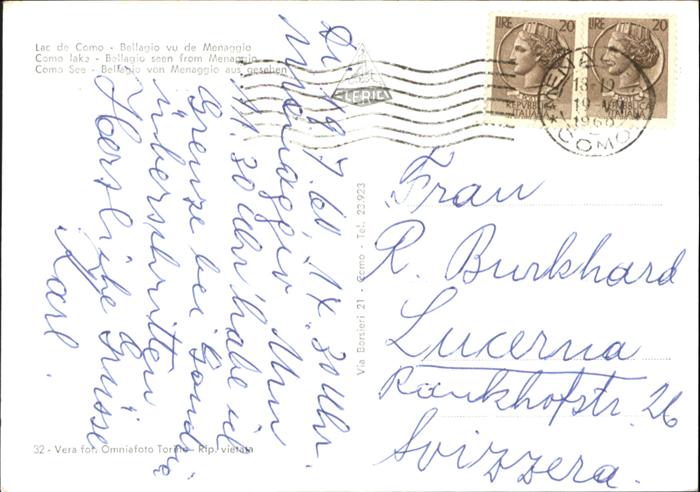 Lac de Como - Bellagio vu de Menaggio
Como lake - Bellagio seen from Menaggio
Como See - Bellagio von Menaggio aus gesehen
LIRE 20
REPVBBLICA
ITALIANA
LIRE 20
REPVBBLICA
ITALIANA
19
1960
COMO
Di 19 7 60, 17.30 Uhr.
Menaggio. Um
11.30 Uhr habe ich
Grenze bei Gondo
überschritten
Herzliche Grüsse
Karl.
Via Borsieri 21 - Como - Tel. 23.923
Frau
R. Burkhard
Lucerna
26
Svizzera.
32 - Vera fot. Omniafoto Torino - Rip. vietata